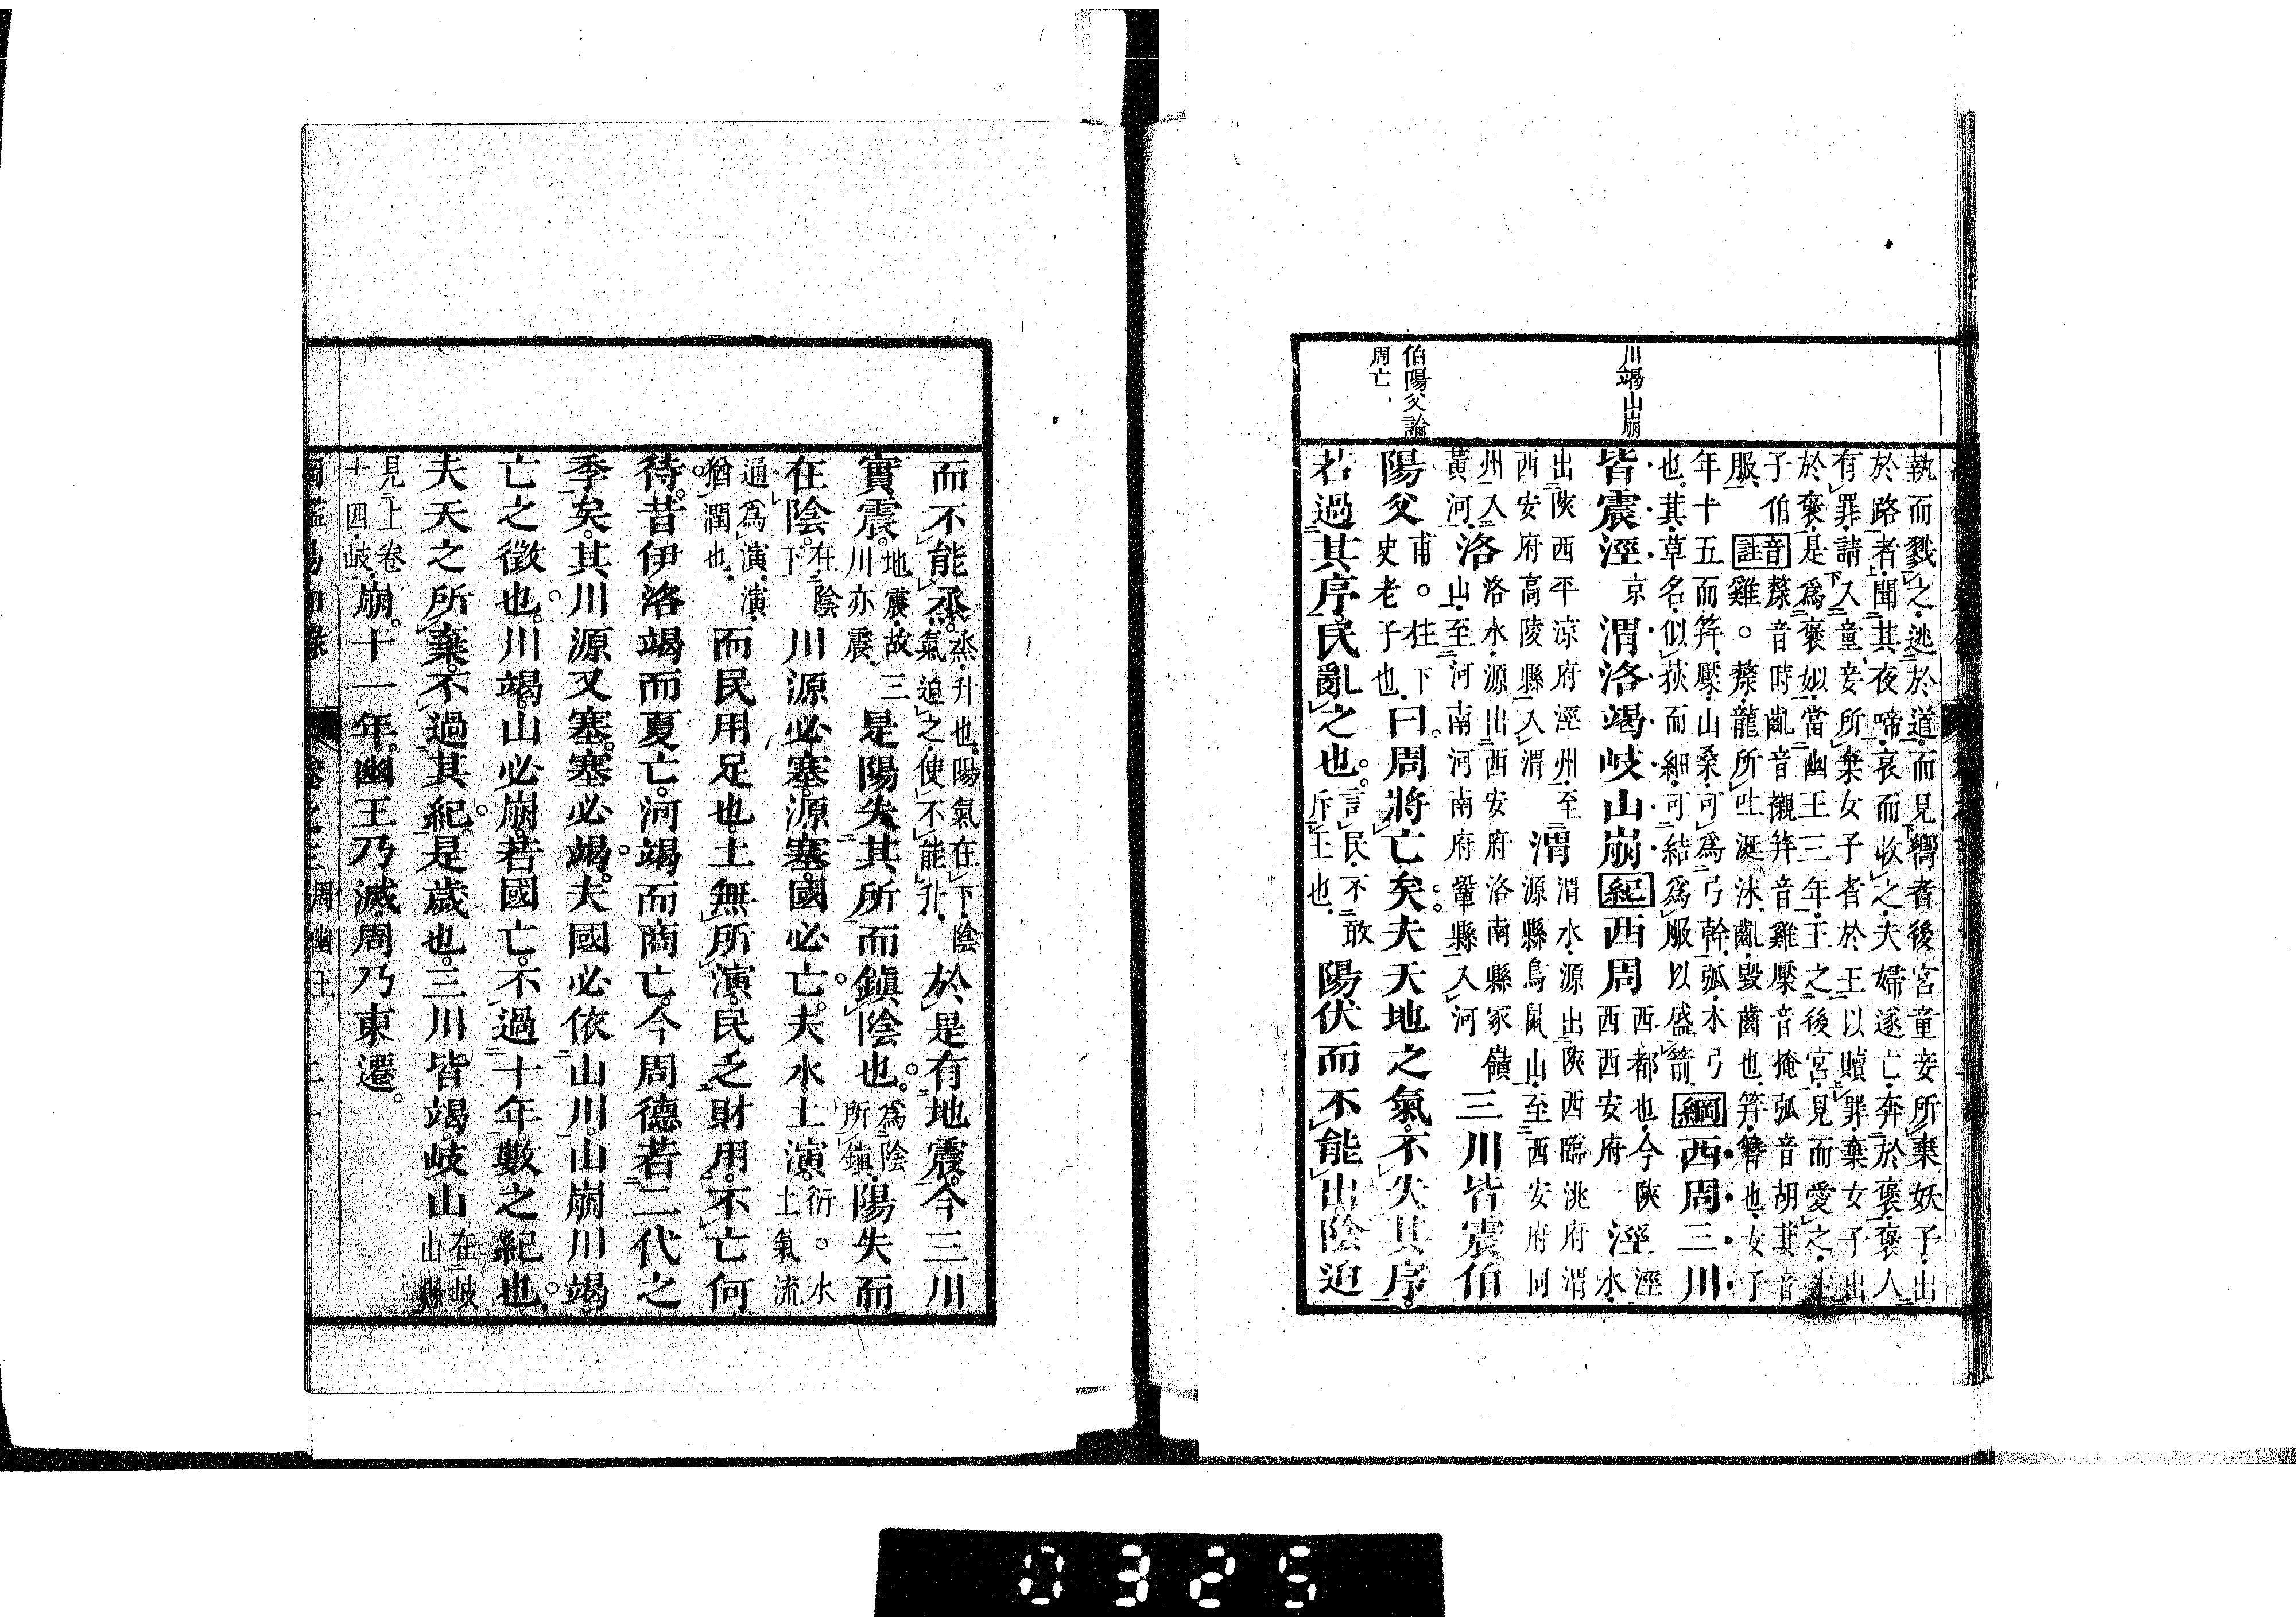 川竭山崩
伯陽父論
周亡
執而戮之逃於道而見嚮者後宮童妾所棄妖子出
於路者聞其夜啼哀而收之夫婦遂亡奔於褒褒人
有罪請入童妾所棄女子者於王以贖罪棄女子出
於褒是為褒姒當幽王三年王之後宮見而愛之生
子伯 音 漦音時齓音襯笄音雞壓音掩弧音胡萁音
服 註 雞。漦龍所吐涎沬齓毀齒也笄簪也女子
年十五而笄壓山桑可為弓幹弧木弓
也萁草名似荻而細可結為服以盛箭 綱 西周三川
皆震涇京渭洛竭岐山崩 紀 西周西都也今陝西西安府涇涇水
出陝西平涼府涇州至西安府高陵縣入渭渭渭水源出陝西臨洮府渭源縣鳥鼠山至西安府同
州入黃河洛洛水源出西安府洛南縣冢嶺山至河南河南府鞏縣入河三川皆震伯
陽父甫。柱下史老子也曰周將亡矣夫天地之氣不失其序
若過其序民亂之也言民不敢斥王也陽伏而不能出陰迫
而不能烝烝升也陽氣在下陰氣迫之使不能升於是有地震今三川
實震地震故三川亦震是陽失其所而鎮陰也為陰所鎮陽失而
在陰在陰下川源必塞源塞國必亡夫水土演衍。水土氣流
通為演演猶潤也而民用足也土無所演民乏財用不亡何
待昔伊洛竭而夏亡河竭而商亡今周德若二代之
季矣其川源又塞塞必竭夫國必依山川山崩川竭
亡之徵也川竭山必崩若國亡不過十年數之紀也
夫天之所棄不過其紀是歲也三川皆竭岐山在岐山縣
見上卷十四岐崩十一年幽王乃滅周乃東遷
周幽王
0325